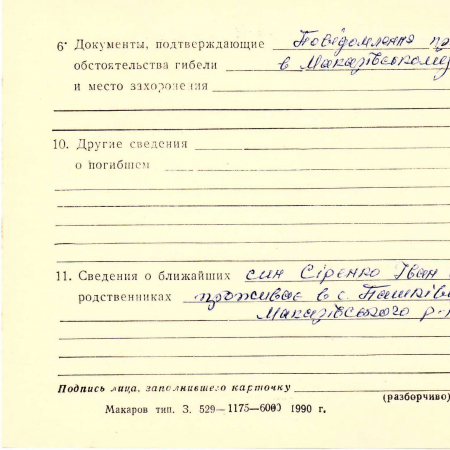 6· Документы, подтверждающие Повідомлення
обстоятельства гибели в Макарівському
и место захоронения
10. Другие сведения
о погибшем
11. Сведения о ближайших син Сіренко Іван
родственниках проживає в с. Пашків
Макарівського р-
Подпись лица, заполнившего карточку
(разборчиво)
Макаров тип. З. 529—1175—6000 1990 г.